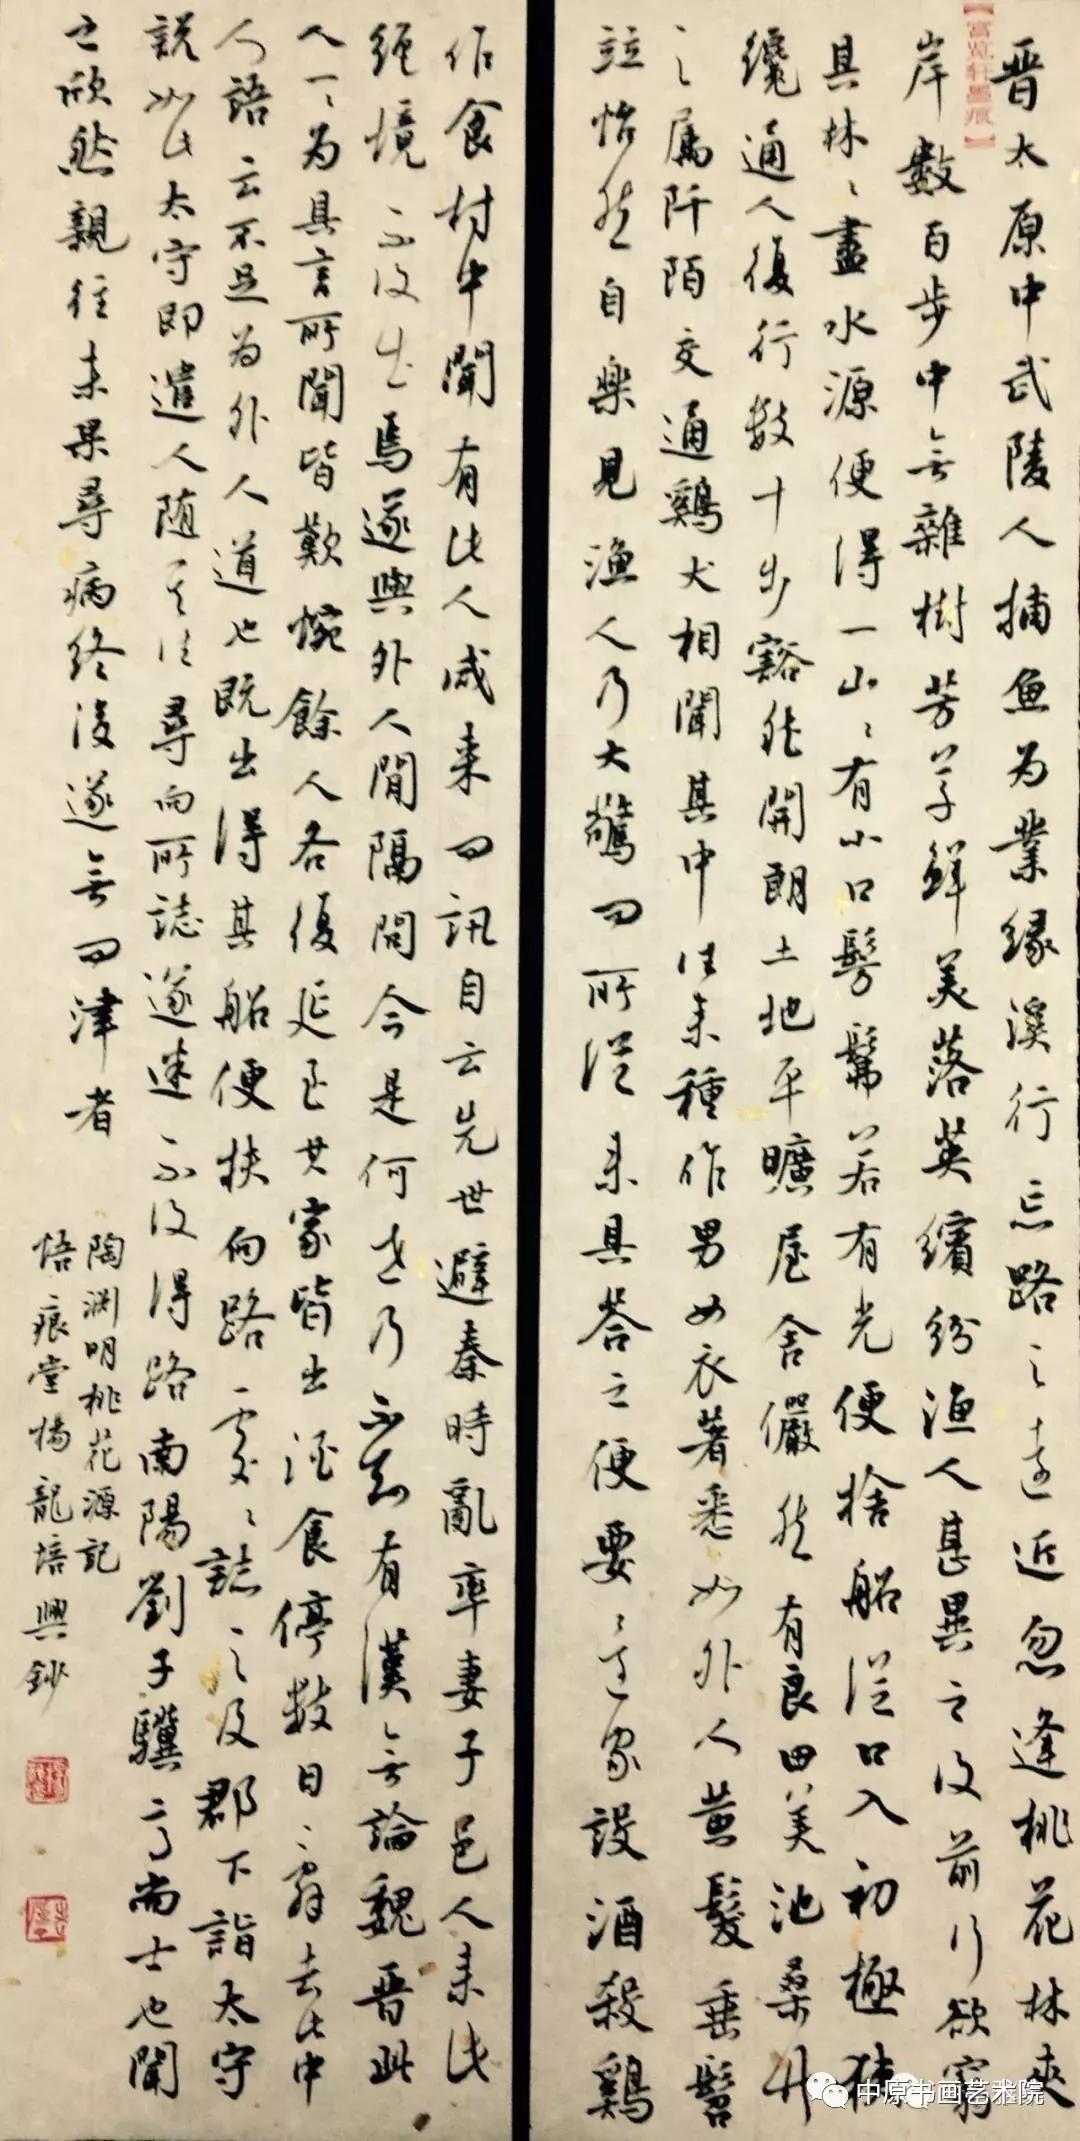 【宽览轩墨痕】
晋太原中武陵人捕鱼为業缘溪行忘路之逺近忽逢桃花林夾
岸數百步中無雜樹芳草鲜美落英繽纷渔人甚異之復前行欲窮
其林々盡水源便得一山々有小口髣髴若有光便捨船從口入初極狭
纔通人復行数十步豁然開朗土地平曠屋舍儼然有良田美池桑竹
之属阡陌交通鷄犬相聞其中往来種作男女衣著悉如外人黄髮垂髫
竝怡然自樂見渔人乃大驚问所從来具答之便要還家設酒殺鷄
作食村中聞有此人咸来问訊自云先世避秦時亂率妻子邑人来此
絕境不復出焉遂與外人間隔問今是何世乃不知有漢無論魏晋此
人一々为具言所聞皆歎惋餘人各復延至其家皆出酒食停数日辭去此中
人語云不足为外人道也既出得其船便扶向路處々誌之及郡下詣太守
說如此太守即遣人随其往尋向所誌遂迷不復得路南陽劉子驥高尚士也聞
之欣然親往未果尋病终後遂無问津者
陶渊明桃花源記
悟痕堂楊龍培興鈔
中原书画艺术院